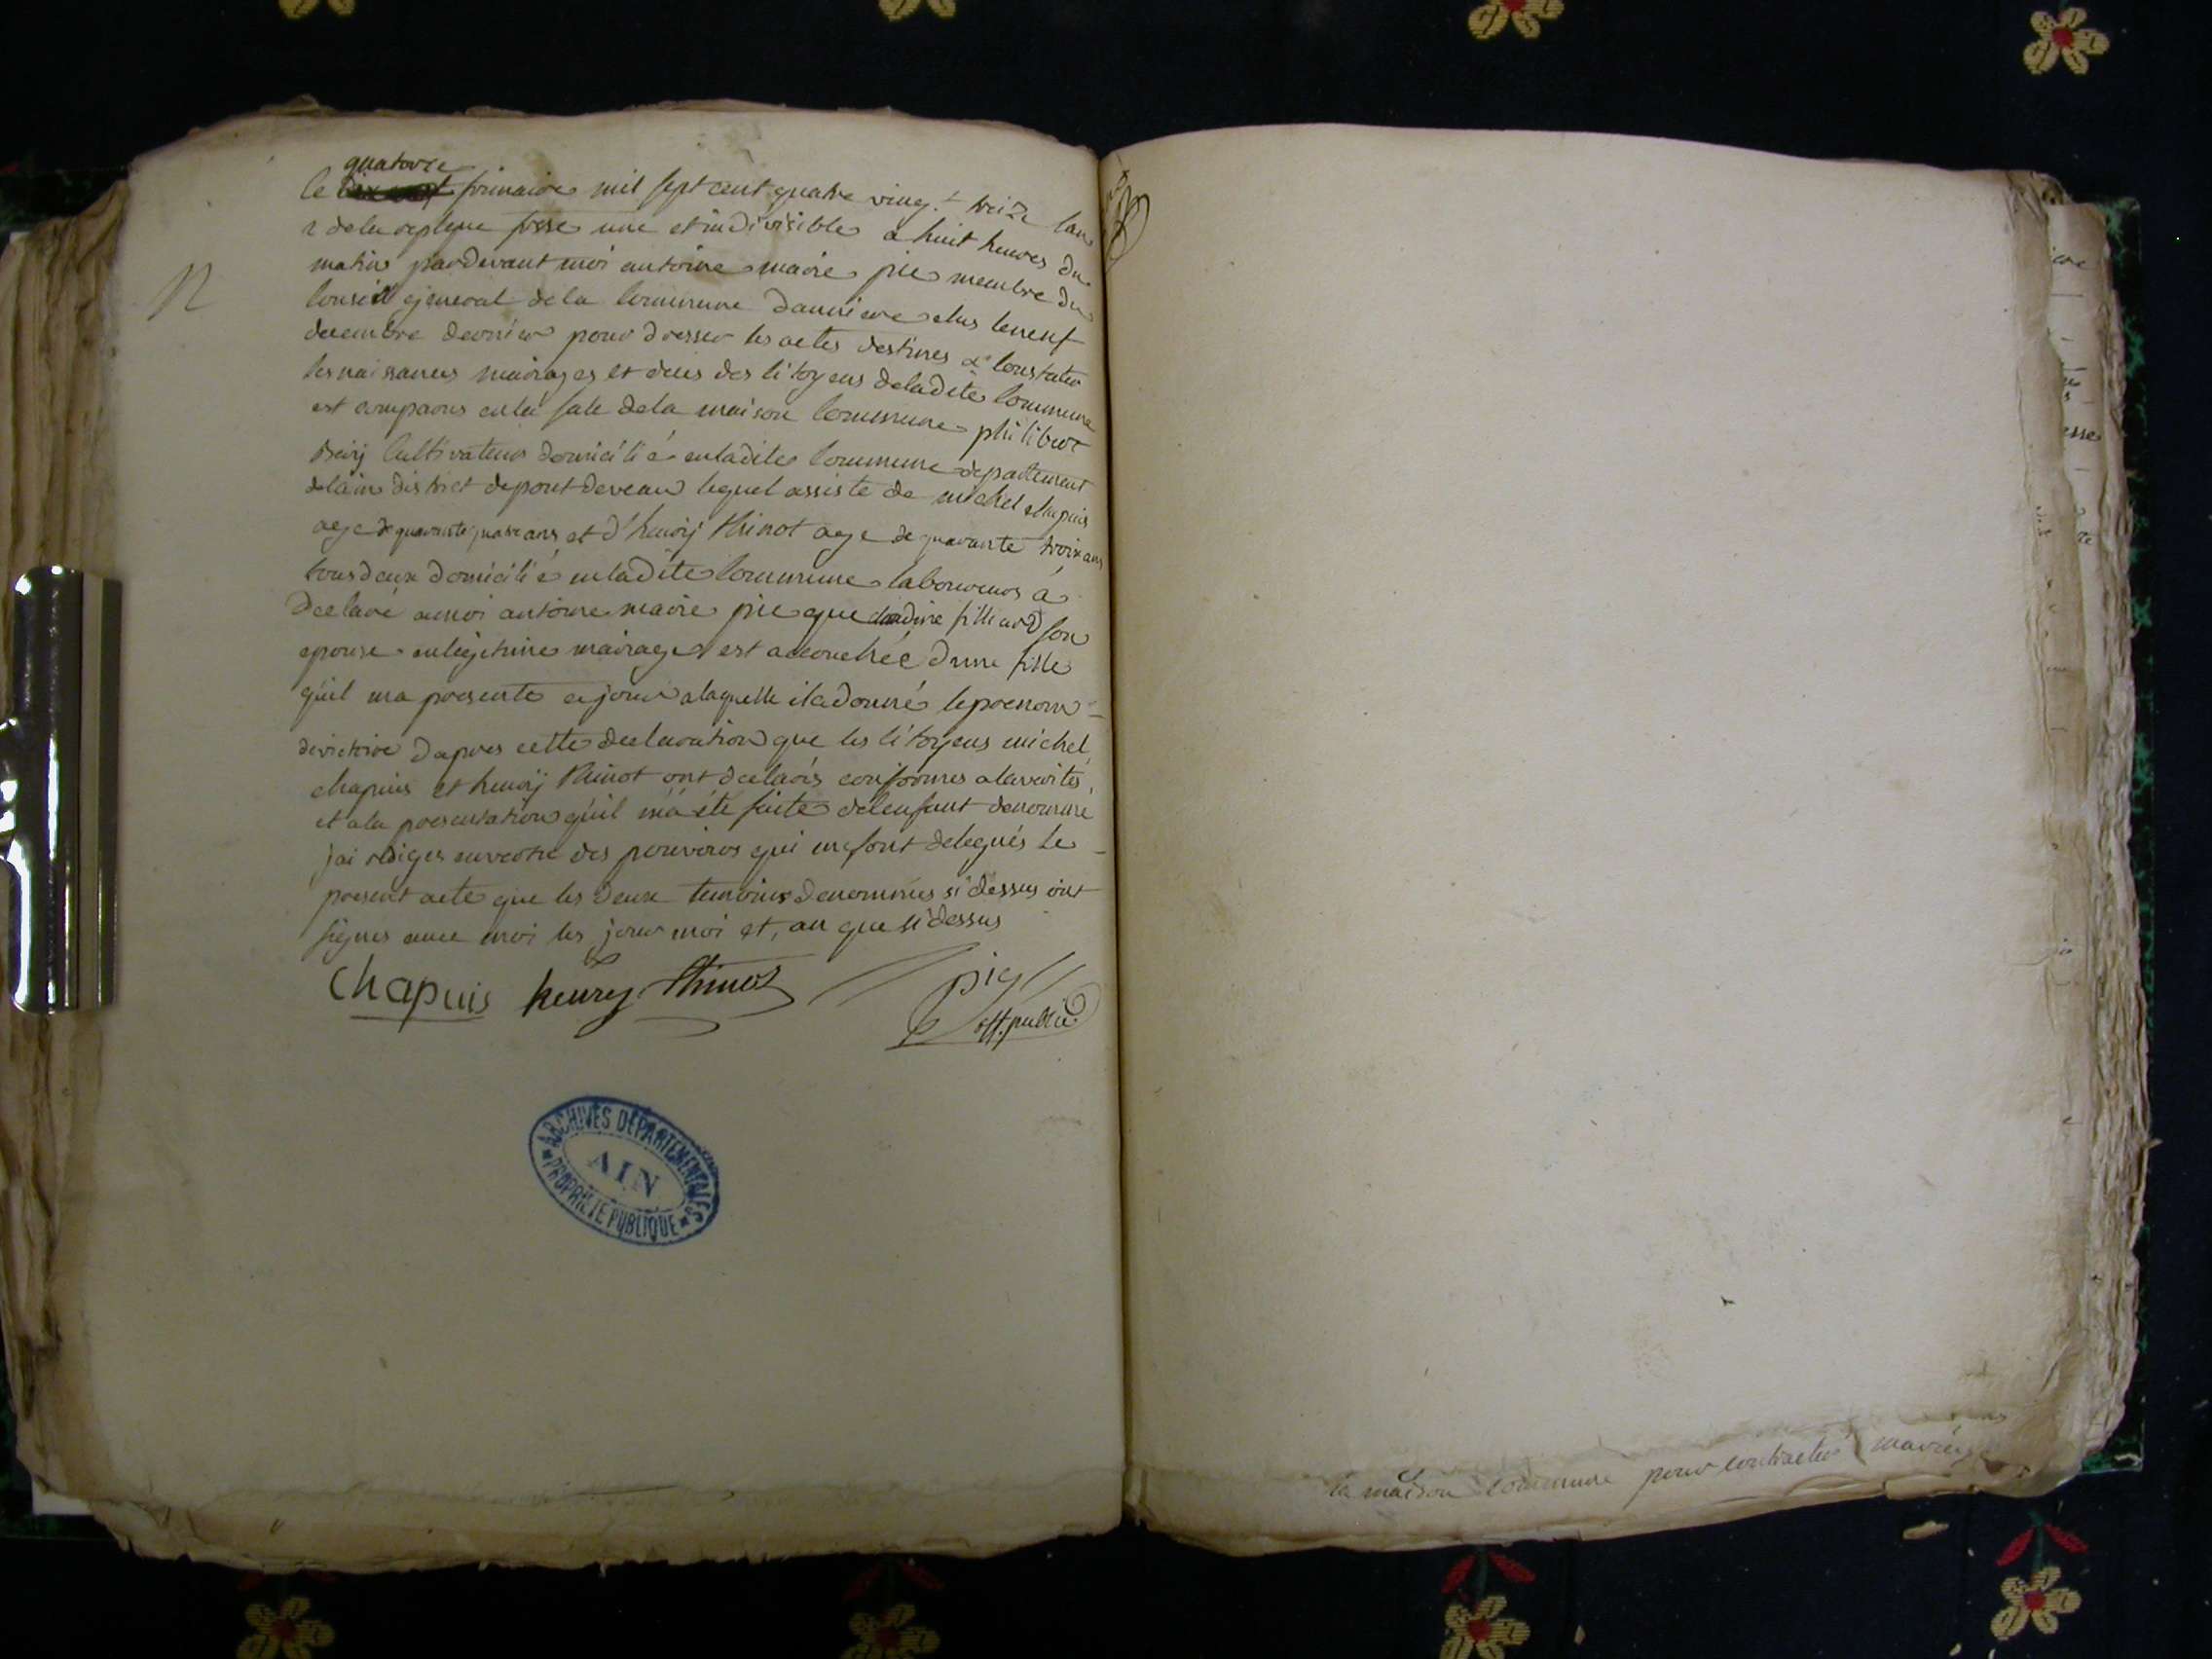 quatorze
le frimaire mil sept cent quatre ving.t treize lan
2 de la replque fsse une et indivisible a huit heures du
matin pardevant moi antoine marie pic membre du
Conseil general de la Commune elus
decembre dernier pour dresser les actes destines a Constater
les naissances mairages et deces des Citoyens de la dite Commune
est comparus en la sale de la maison Commune philibert
Cultivateur domicilié en la dite Commune departement
de lain district de pont de veau lequel assiste de michel chapuis
age de quarante quatre ans et d'henrij thinot age de quarante troix ans
tous deux domicilié en la dite Commune laboureurs á
declaré a moi antoine marie pic que filliard son
epouse en legitime mairage est accouchée dune fille
quil ma presente ce jour a laquelle il a donné le prenom
de victoire dapres cette declaration que les Citoyens michel
chapuis et henrij thinot ont declarés conformes a la verites
et a la presentation quil má éte faite de lenfant denommé
jai rediges en vertu des pouvoirs qui me sont delegués le
present acte que les deux temoins denommés si dessus ont
signes avec moi les jour moi et, an que si dessus
Chapuis henry thinot pic
off. public
N
ARCHIVES DÉPARTEMENTALES
AIN
PROPRIÉTÉ PUBLIQUE
la maison commune pour contracter mariage